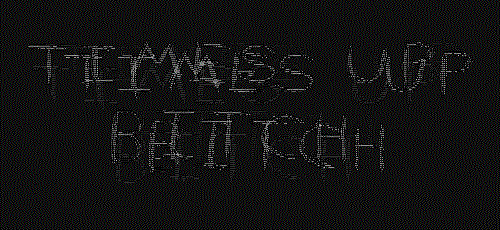 TIMES UP
BITCH